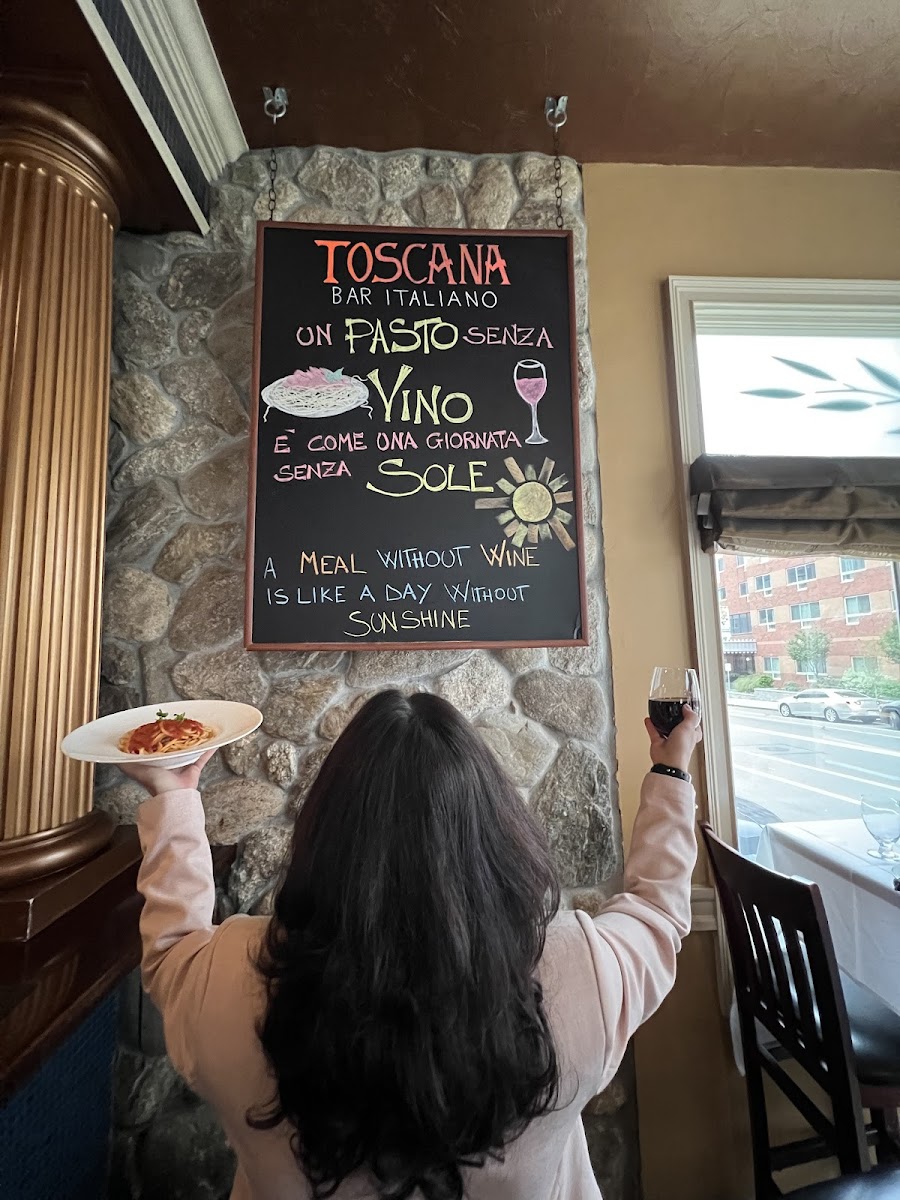 TOSCANA
BAR ITALIANO
UN PASTO SENZA
VINO
E' COME UNA GIORNATA
SENZA SOLE
A MEAL WITHOUT WINE
IS LIKE A DAY WITHOUT
SUNSHINE